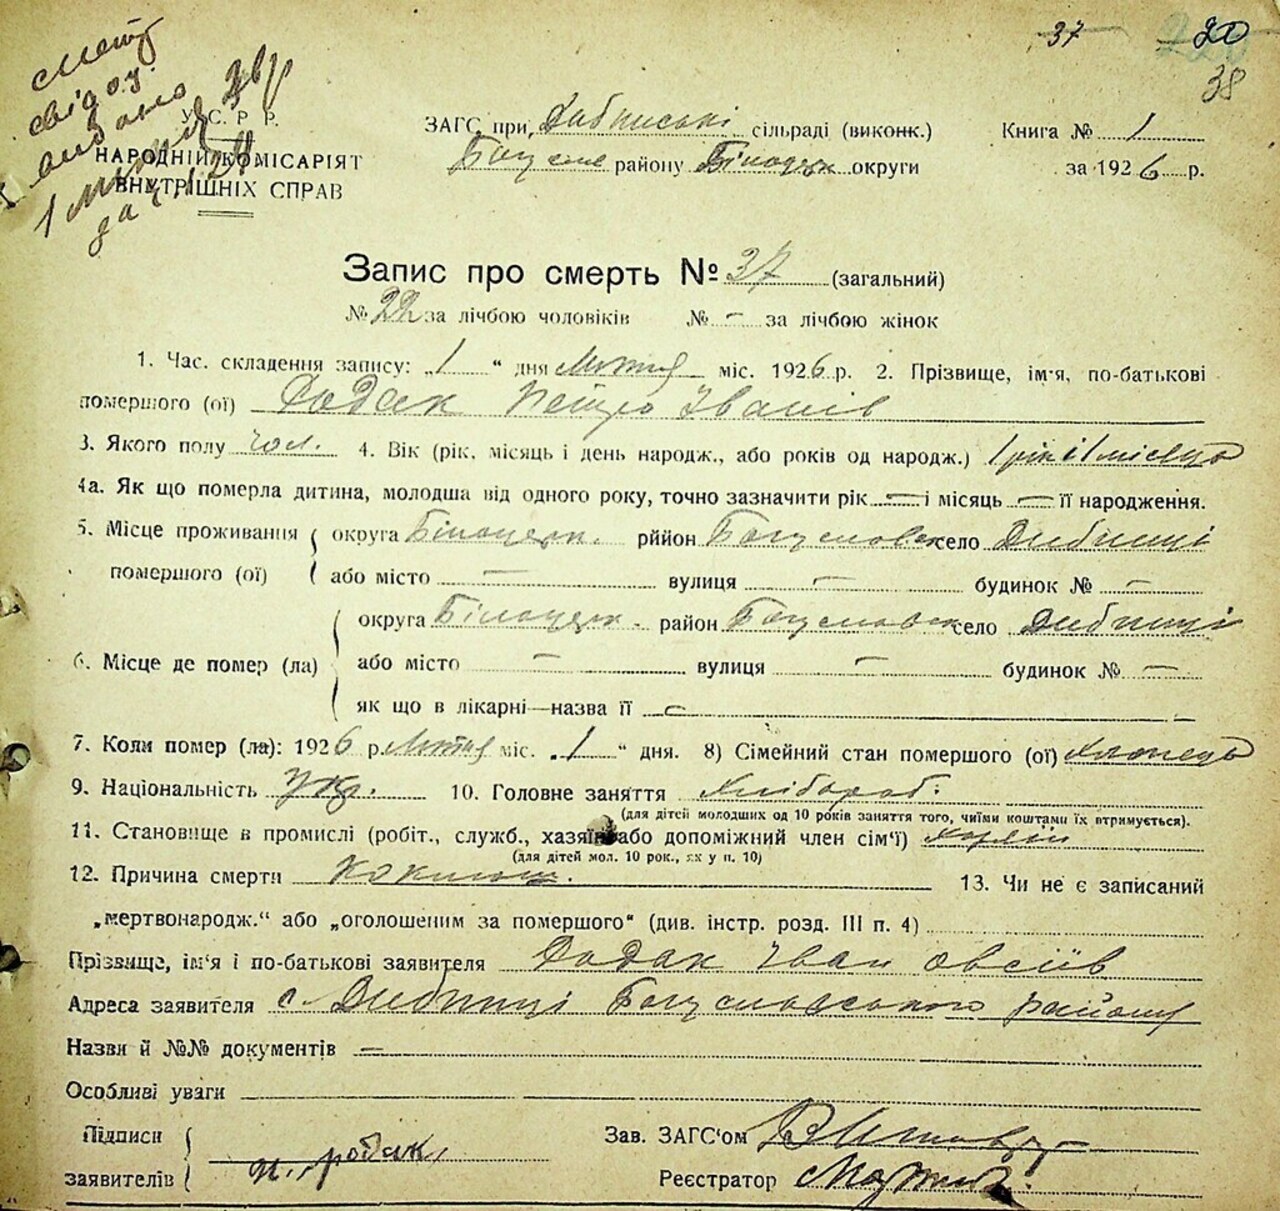 37 20
38
смерт
свідоц.
видано
У. С. Р. Р.
НАРОДНІЙ КОМІСАРІЯТ
ВНУТРІШНІХ СПРАВ
ЗАГС при Дибинській сільраді (виконк.)
район у Білоцерк округи
Книга № 1
за 1926 р.
Запис про смерть № 37 (загальний)
№ 22 за лічбою чоловіків № — за лічбою жінок
1. Час. складення запису: „1“ дня Лютий міс. 1926 р. 2. Прізвище, ім'я, по-батькові
помершого (ої) Додак Петро Іванів
3. Якого полу чол. 4. Вік (рік, місяць і день народж., або років од народж.) 1 рік і 1 місяць
4а. Як що померла дитина, молодша від одного року, точно зазначити рік — і місяць — її народження.
5. Місце проживання округа Білоцерк. рййон Богуславск село Дибинці
помершого (ої) або місто — вулиця — будинок № —
округа Білоцерк. район Богуславск село Дибинці
6. Місце де помер (ла) або місто — вулиця — будинок № —
як що в лікарні—назва її —
7. Коли помер (ла): 1926 р. Лютий міс. „1“ дня. 8) Сімейний стан помершого (ої) Хлопець
9. Національність Укр. 10. Головне заняття Хлібороб.
(для дітей молодших од 10 років заняття того, чиїми коштами їх втримується).
11. Становище в промислі (робіт., служб., хазяїн або допоміжний член сім'ї)
(для дітей мол. 10 рок., як у п. 10)
12. Причина смерти Коклюш. 13. Чи не є записаний
„мертвонародж.“ або „оголошеним за помершого“ (див. інстр. розд. III п. 4)
Прізвище, ім'я і по-батькові заявителя Додак Іван Овсіїв
Адреса заявителя с. Дибинці Богуславського району
Назви й №№ документів —
Особливі уваги
Підписи
заявителів
Зав. ЗАГС'ом
Реєстратор